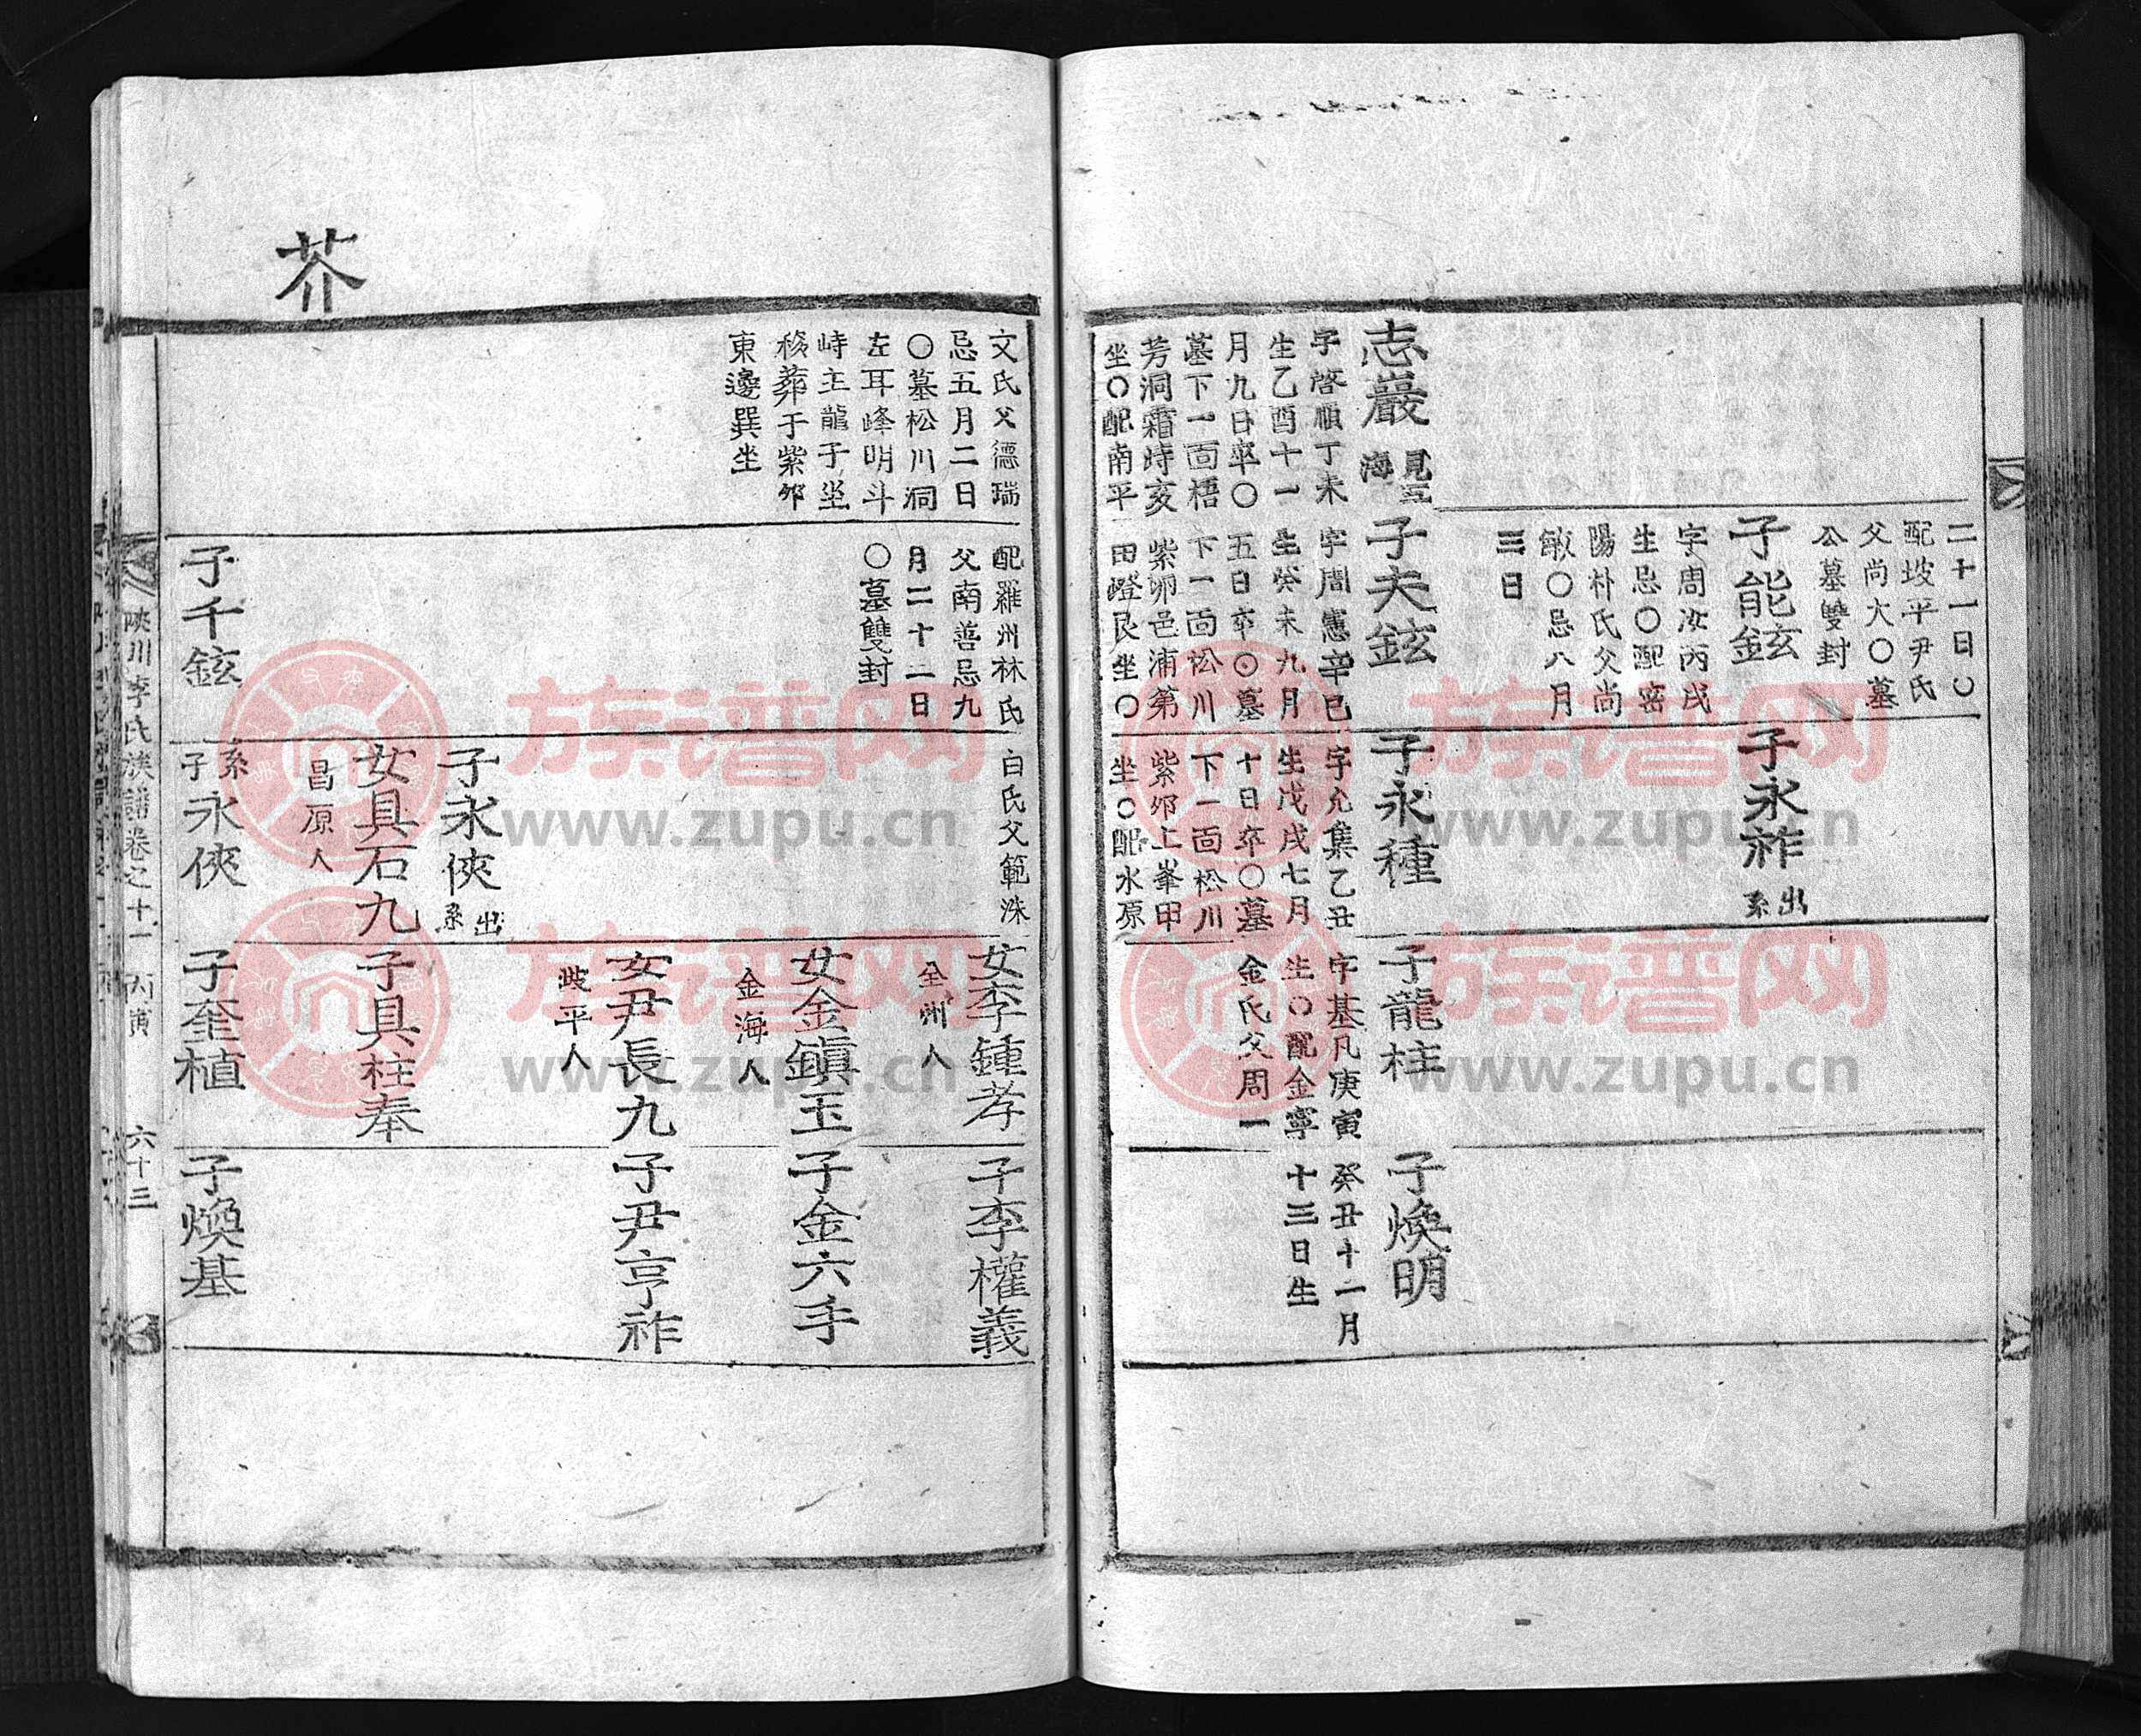 二十一日〇
配坡平尹氏
父尚大〇墓
公墓雙封
子能鉉
字周汝丙戌
生忌〇配密
陽朴氏父尚
敏〇忌八月
三日
子永祚
出系
志巖
見
海
字啓順丁未
生乙酉十一
月九日卒〇
墓下一面梧
芳洞霜峙亥
坐〇配南平
子夫鉉
字周憲辛巳
生癸未九月
五日卒〇墓
下一面松川
紫卵邑浦第
田嶝艮坐〇
子永種
字允集乙丑
生戊戌七月
十日卒〇墓
下一面松川
紫卵上峯甲
坐〇配水原
子龍柱
字基凡庚寅
生〇配金寧
金氏父周一
子煥明
癸丑十一月
十三日生
芥
文氏父德瑞
忌五月二日
〇墓松川洞
左耳峰明斗
峙主龍子坐
移葬于紫卵
東邊巽坐
配羅州林氏
父南善忌九
月二十二日
〇墓雙封
子千鉉
白氏父範洙
子永俠
出系
女具石九
昌原人
系子永俠
女李鍾孝
全州人
女金鎭玉
金海人
女尹長九
坡平人
子具柱奉
子奎植
子李權義
子金六手
子尹亨祚
子煥基
陜川李氏族譜卷之十一 丙寅 六十三
族谱网
www.zupu.cn
族谱网
www.zupu.cn
族谱网
www.zupu.cn
族谱网
www.zupu.cn